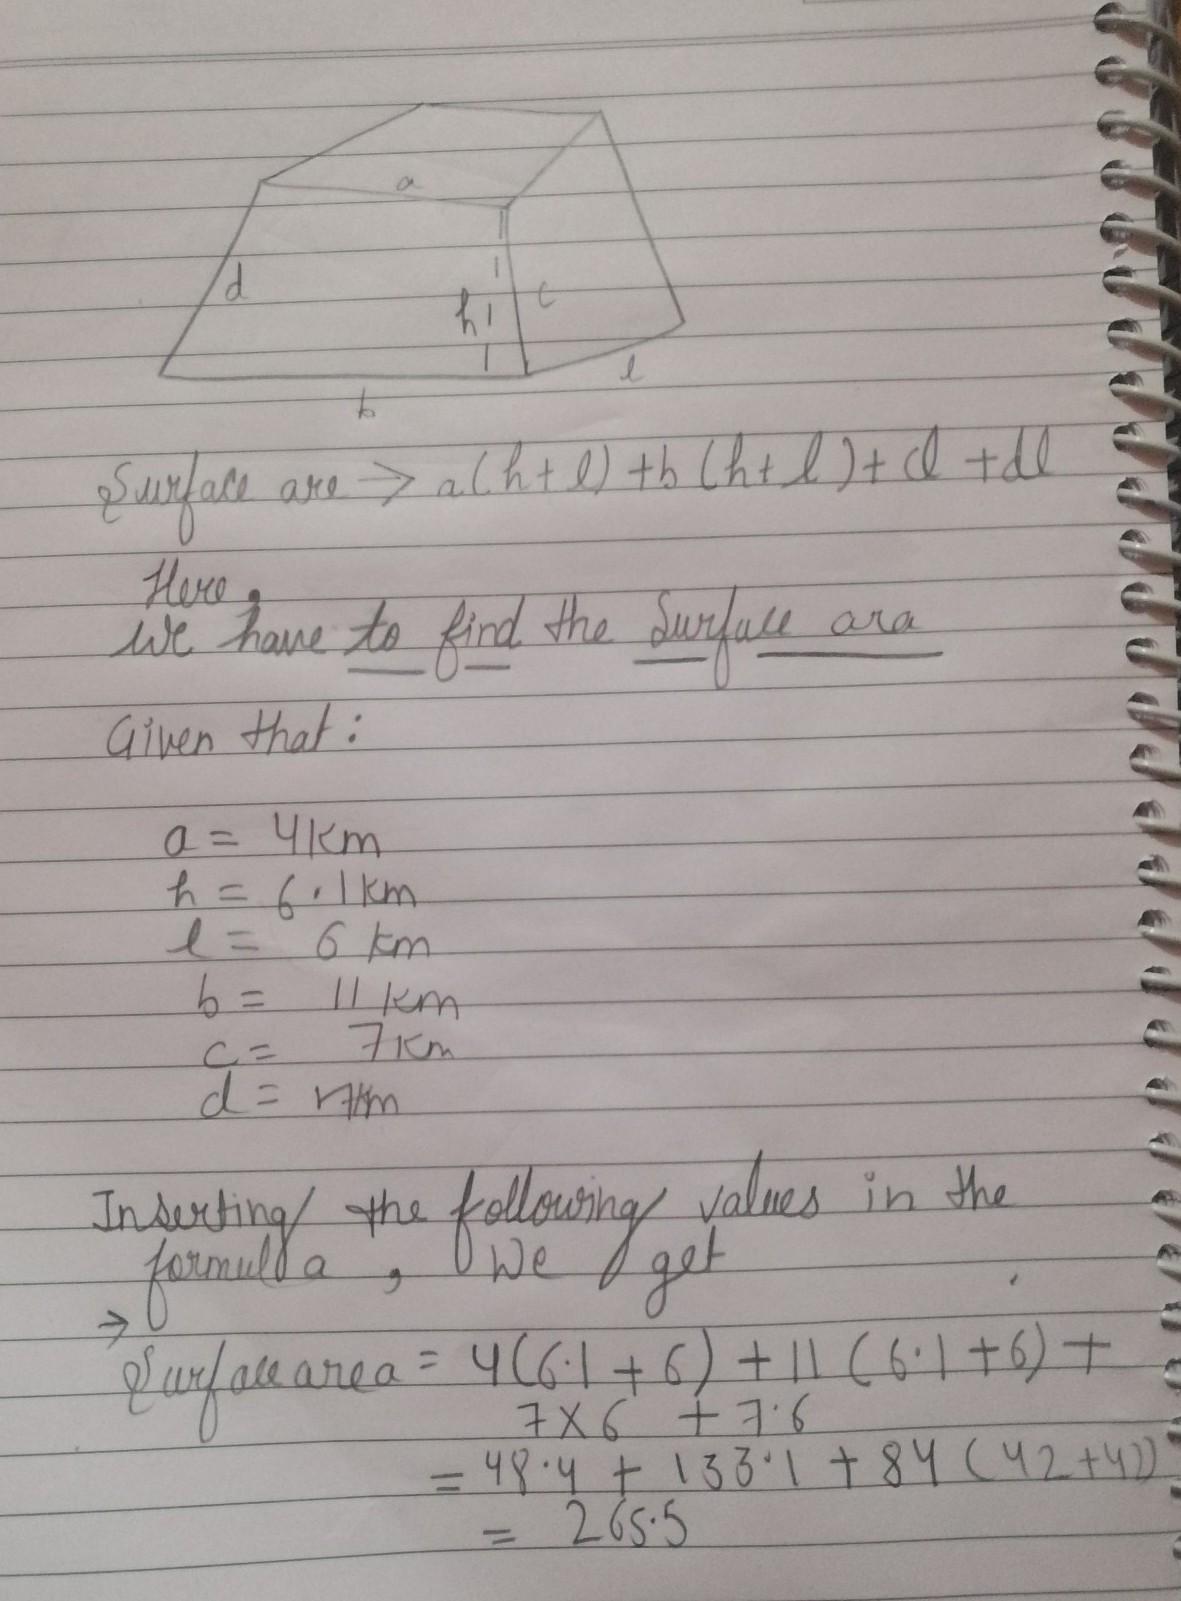 a
d
h
c
l
b
Surface are → a(h+l)+b(h+l)+cl+dl
Here,
We have to find the Surface ara
Given that:
a = 4km
h = 6.1km
l = 6 km
b = 11 km
c = 7km
d = 7km
Inserting the following values in the
formula, We get
→
Surface area = 4(6.1+6)+11(6.1+6)+
7×6 +7.6
= 48.4 + 133.1 + 84 (42+42)
= 265.5